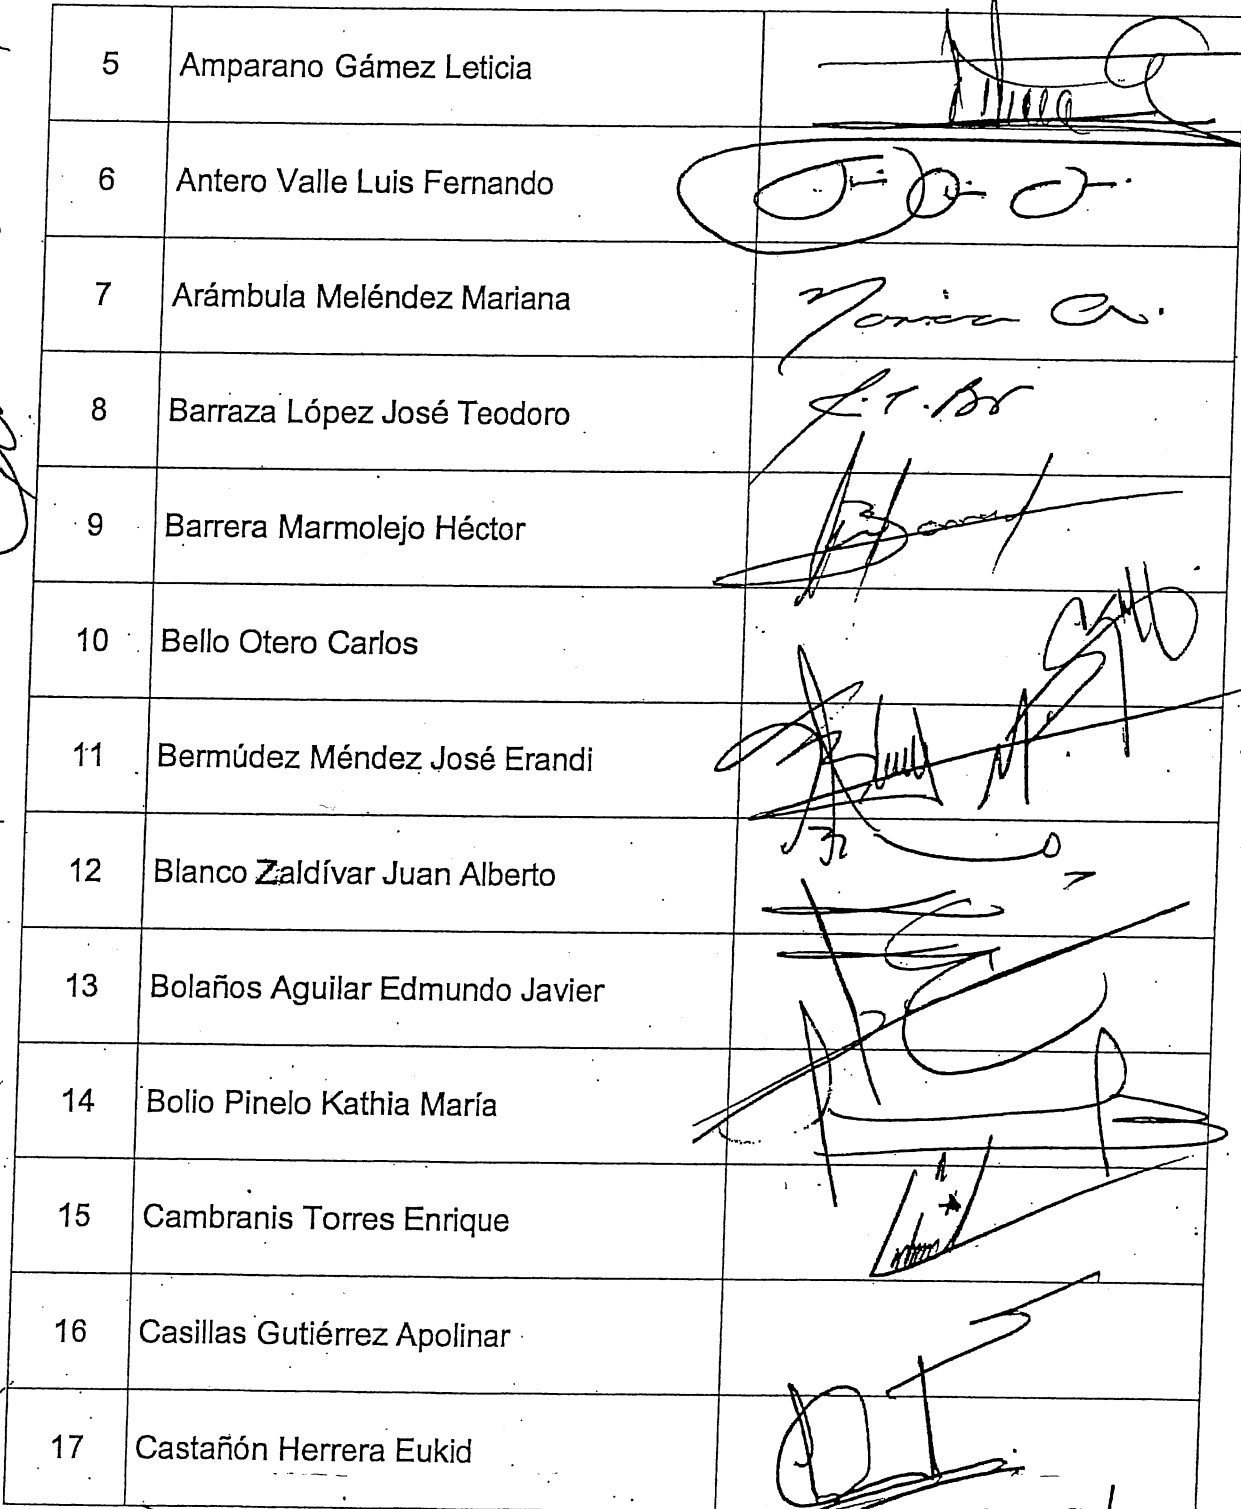 5 Amparano Gámez Leticia
6 Antero Valle Luis Fernando
7 Arámbula Meléndez Mariana
8 Barraza López José Teodoro J.T.Br
9 Barrera Marmolejo Héctor
10 Bello Otero Carlos
11 Bermúdez Méndez José Erandi
12 Blanco Zaldívar Juan Alberto
13 Bolaños Aguilar Edmundo Javier
14 Bolio Pinelo Kathia María
15 Cambranis Torres Enrique
16 Casillas Gutiérrez Apolinar
17 Castañón Herrera Eukid